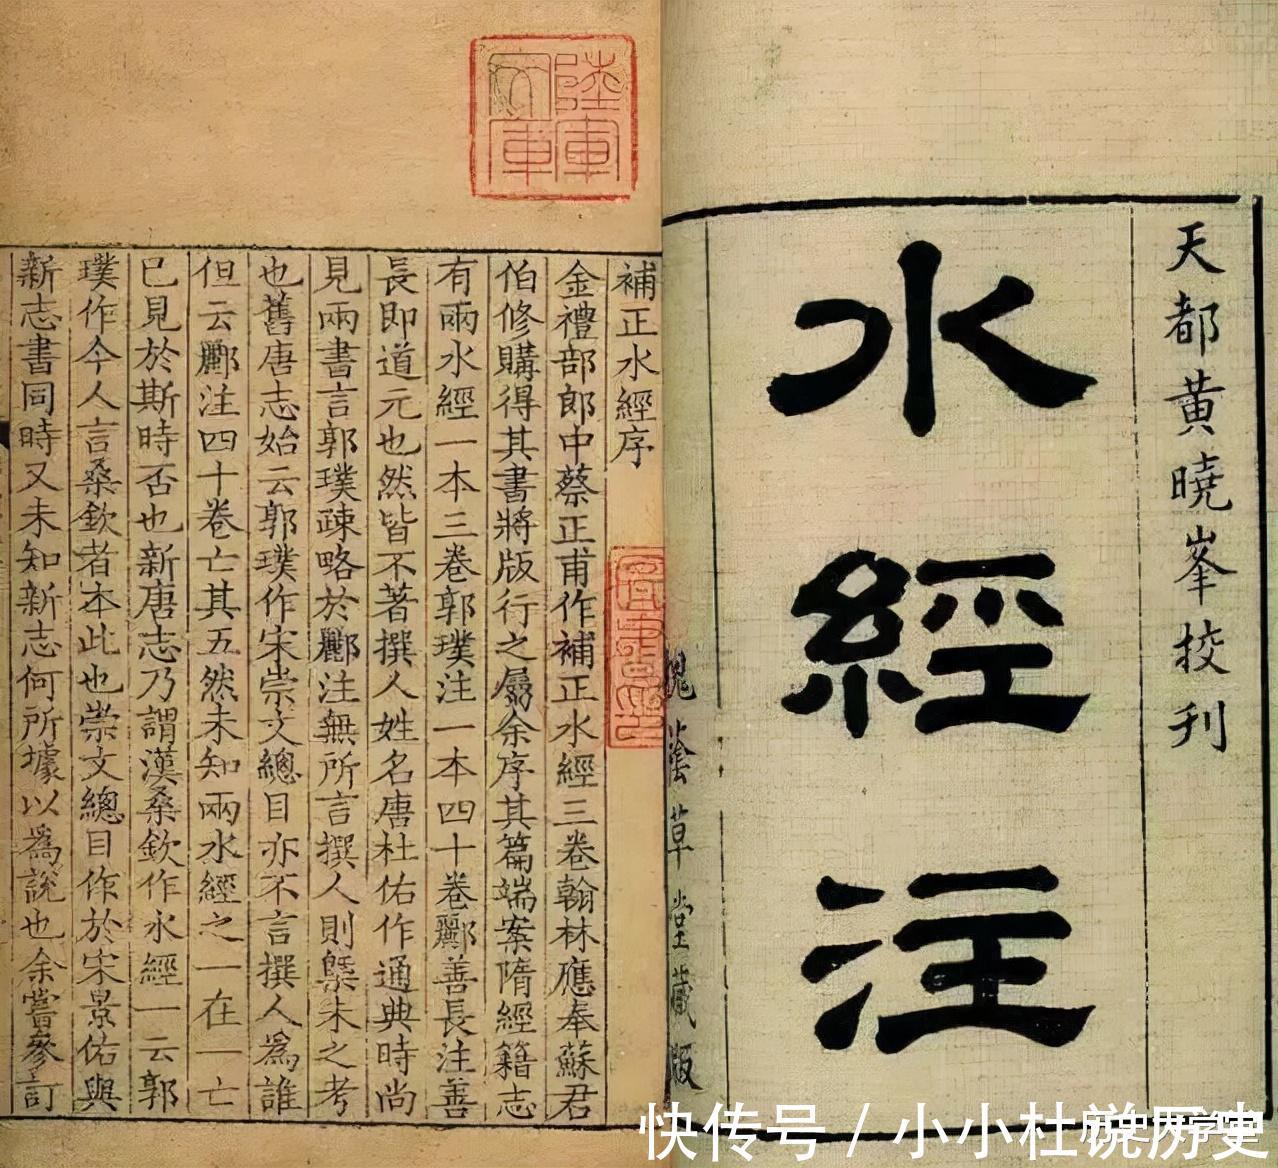 天都黄曉峯挍刋
水經注
槐蔭草堂藏版
陸軍
補正水經序
金禮部郎中蔡正甫作補正水經三卷翰林應奉蘇君
伯修購得其書將版行之屬余序其篇端案隋經籍志
有兩水經一本三卷郭璞注一本四十卷酈善長注善
長即道元也然皆不著撰人姓名唐杜佑作通典時尚
見兩書言郭璞疎略於酈注無所言撰人則槩未之考
也舊唐志始云郭璞作宋崇文總目亦不言撰人為誰
但云酈注四十卷亡其五然未知兩水經之一在一亡
已見於斯時否也新唐志乃謂漢桑欽作水經一云郭
璞作今人言桑欽者本此也崇文總目作於宋景佑與
新志書同時又未知新志何所據以為說也余嘗參訂
快传号 / 小小杜说历史